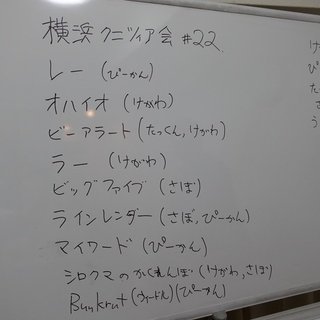 横浜 クニツィア会 #22
レー (ぴーかん)
オハイオ (けがわ)
ビーアラート (たっくん,けがわ)
ラー (けがわ)
ビッグファイブ (さぼ)
ラインレンダー (さぼ,ぴーかん)
マイワード (ぴーかん)
シロクマのかくれんぼ (けがわ,さぼ)
(ぴーかん)
け
ぴ
た
さ
う